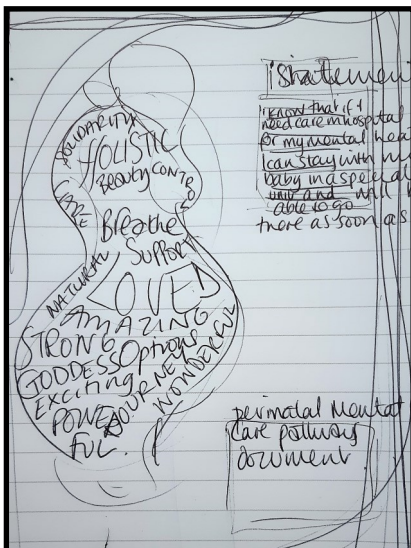 SOLIDARITY
HOLISTIC
Beauty CONTROL
Breathe
Support
NATURAL
LOVED
AMAZING
STRONG
Options
GODDESS
JOURNEY
Exciting
WONDERFUL
POWERFUL.
i Statement
i know that if i
need care in hospital
for my mental hea
I can stay with m
baby in a special
unit and will b
able to go
there as soon as
perinatal Mental
Care pathway
document